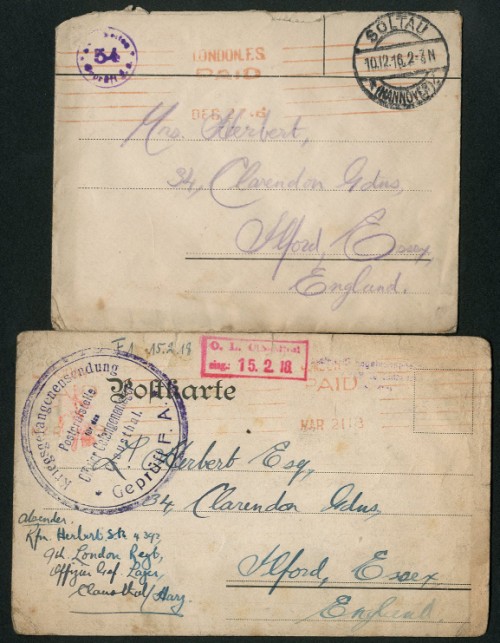 54
Geprüft
LONDON.F.S.
PAID
DEC
SOLTAU
10.12.16. 2-3 N
(HANNOVER)
Mrs. Herbert,
34, Clarendon Gdns,
Ilford, Essex,
England.
15.2.18
O. L. Clausthal
eing.: 15. 2. 18
PAID
MAR 21 18
Postkarte
Kriegsgefangenensendung
Postprüfstelle
für das
Clausthal
Geprüft F. A.
Herbert Esq,
34, Clarendon Gdns,
Ilford, Essex
England.
Absender:
Rfn. Herbert
9th London Regt,
Offizier Gef. Lager,
Clausthal/Harz.